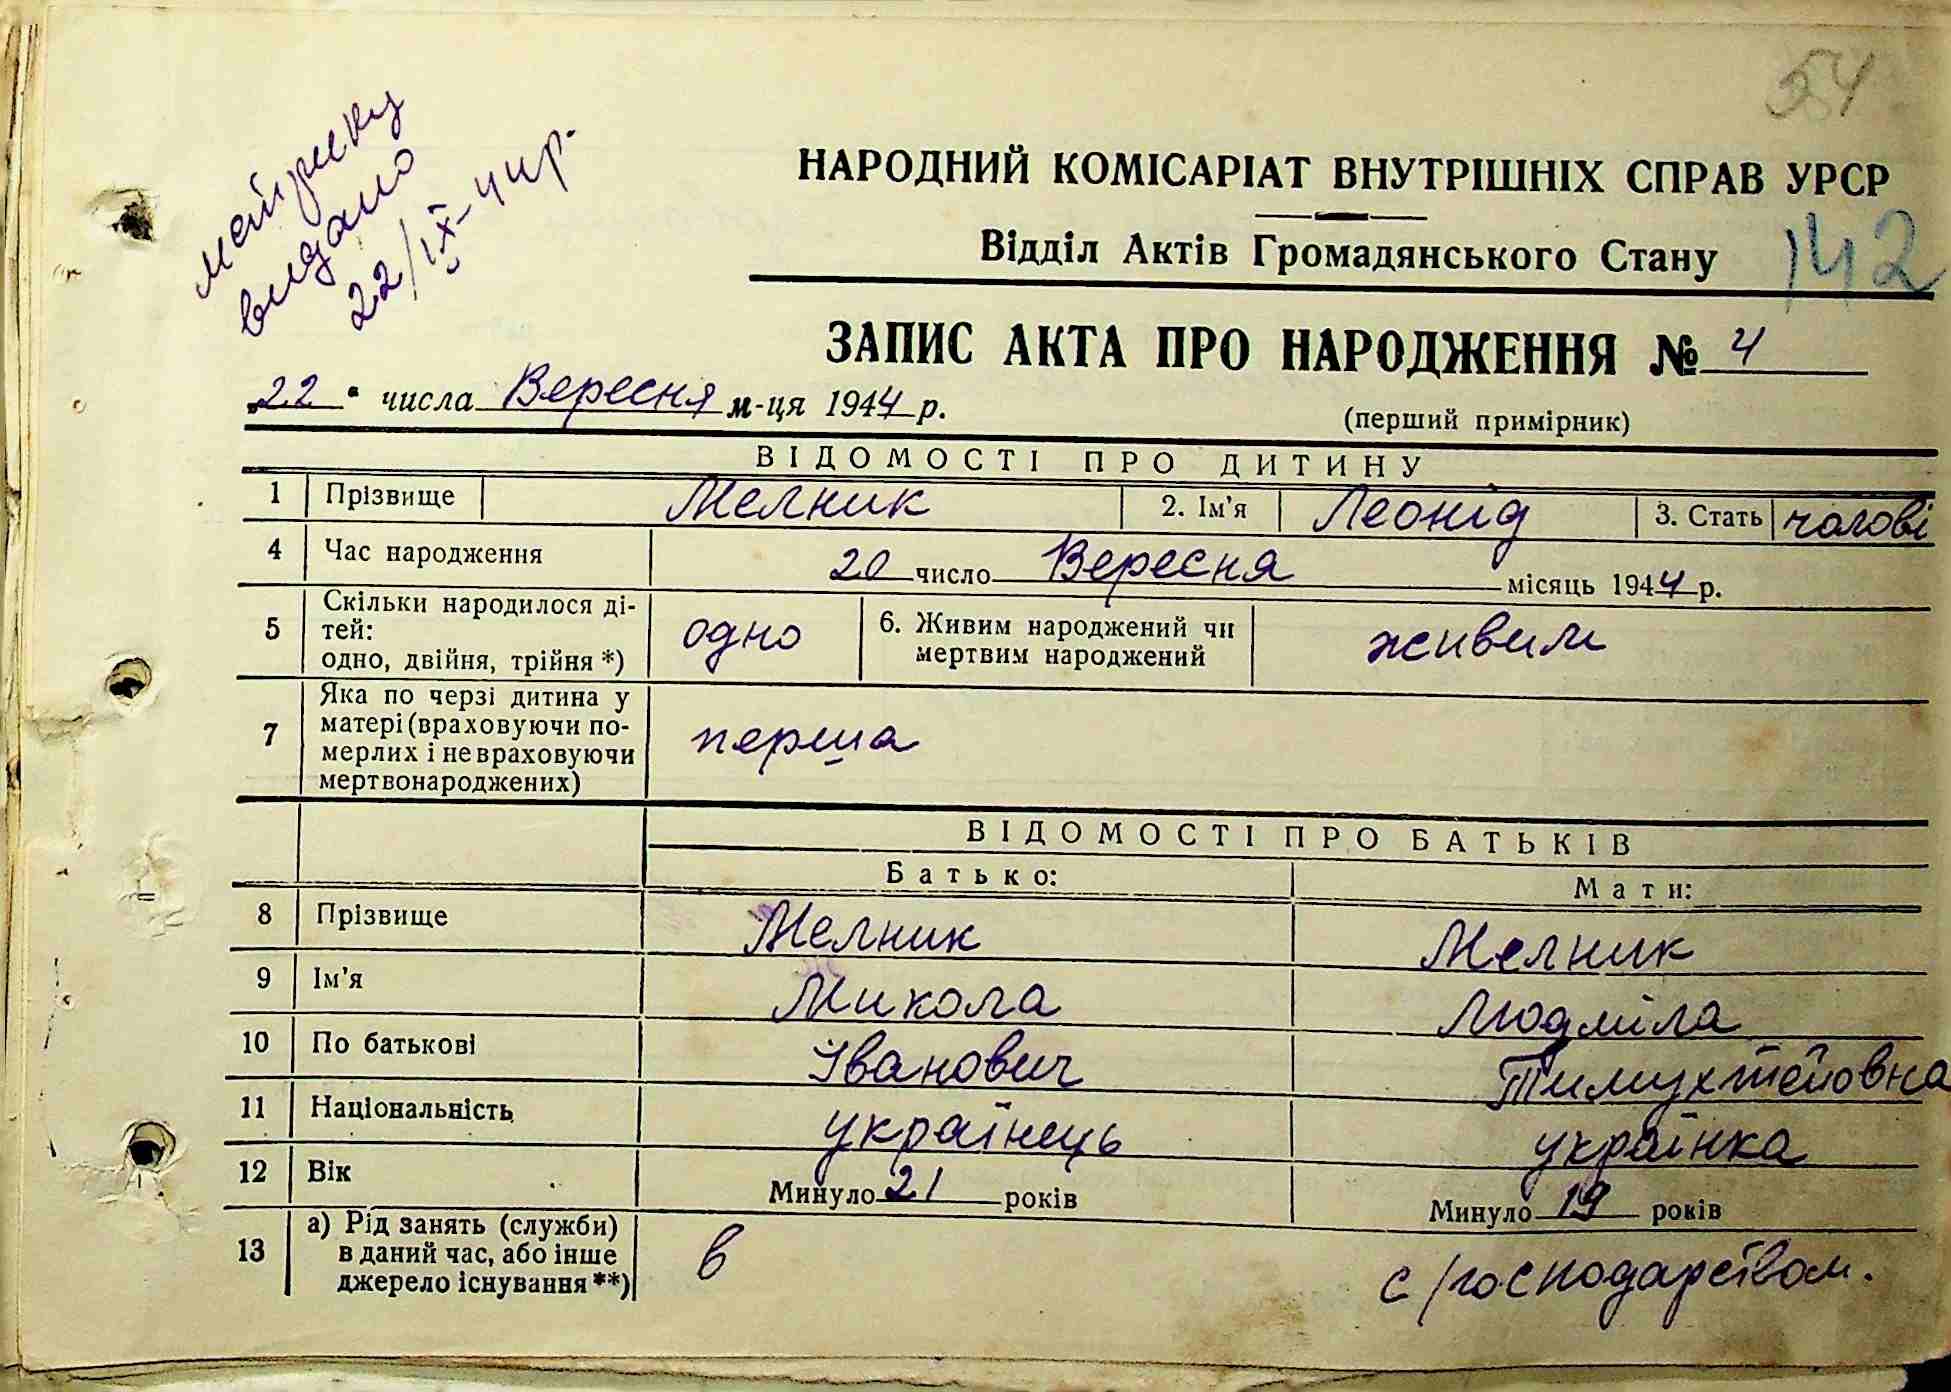 54
метрику
видано
22/ІХ-44р.
НАРОДНИЙ КОМІСАРІАТ ВНУТРІШНІХ СПРАВ УРСР
Відділ Актів Громадянського Стану 142
ЗАПИС АКТА ПРО НАРОДЖЕННЯ № 4
„22" числа Вересня м-ця 1944 р.
(перший примірник)
ВІДОМОСТІ ПРО ДИТИНУ
1 Прізвище Мелник 2. Ім'я Леонід 3. Стать чолові
4 Час народження 20 число Вересня місяць 1944 р.
5 Скільки народилося ді-
тей:
одно, двійня, трійня *) одно 6. Живим народжений чи
мертвим народжений живим
7 Яка по черзі дитина у
матері (враховуючи по-
мерлих і не враховуючи
мертвонароджених) перша
ВІДОМОСТІ ПРО БАТЬКІВ
Батько: Мати:
8 Прізвище Мелник Мелник
9 Ім'я Микола Людміла
10 По батькові Іванович Тимухтейовна
11 Національність українець українка
12 Вік Минуло 21 років Минуло 19 років
13 а) Рід занять (служби)
в даний час, або інше
джерело існування **) в с/господарством.